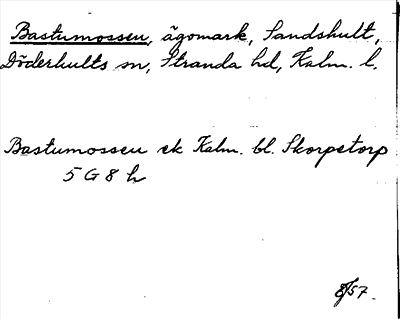 Bastumossen, ägomark, Sandshult,
Döderhults sn, Stranda hd, Kalm. l.
Bastumossen ek Kalm. bl. Skorpetorp
5 G 8 h
57.